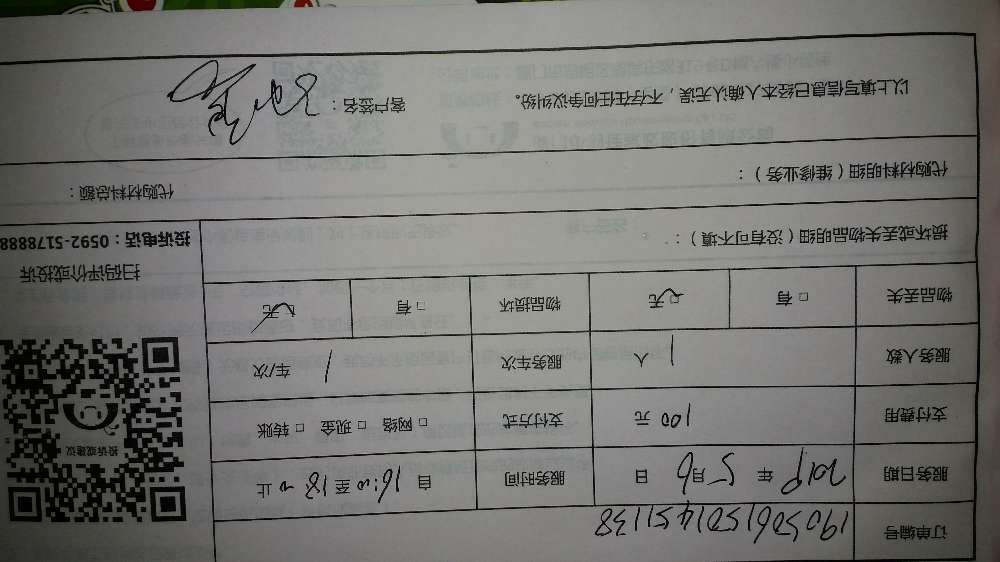 订单编号 1905061501451138
服务日期 2019 年 5 月 6 日 服务时间 自 16:00 至 18:00 止
支付费用 100 元 支付方式 □ 网络 □ 现金 □ 转账
服务人数 1 人 服务车次 1 车/次
物品丢失 □ 有 □ 无 物品损坏 □ 有 □ 无
投诉或建议
扫码评价或投诉
投诉电话：0592-5178888
损坏或丢失物品明细（没有可不填）：
代购材料明细（维修业务）： 代购材料总额：
以上填写信息已经本人确认无误，不存在任何争议纠纷。 客户签名：